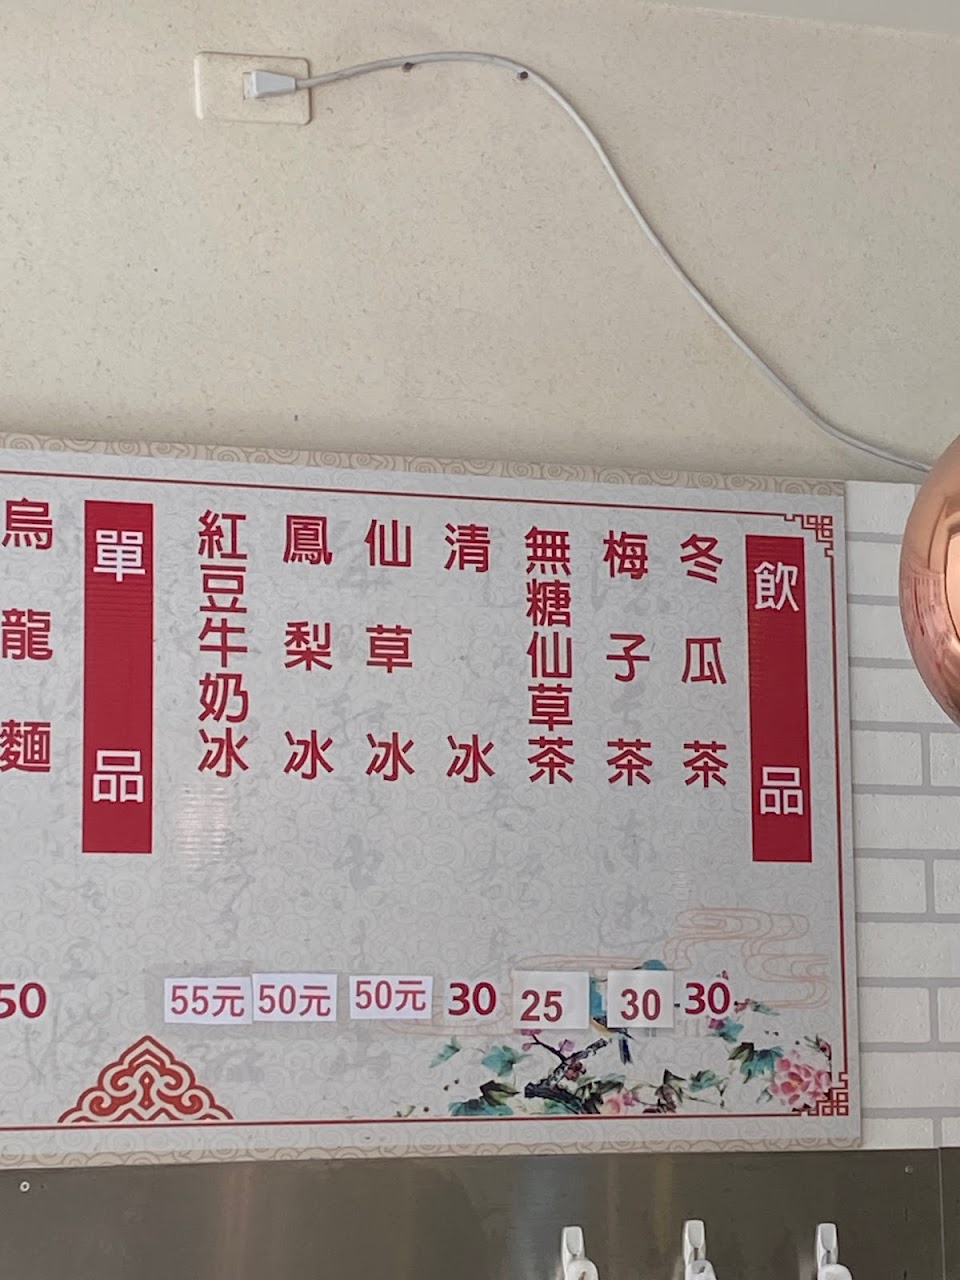 飲品
冬瓜茶 30
梅子茶 30
無糖仙草茶 25
清冰 30
仙草冰 50元
鳳梨冰 50元
紅豆牛奶冰 55元
單品
烏龍麵 50